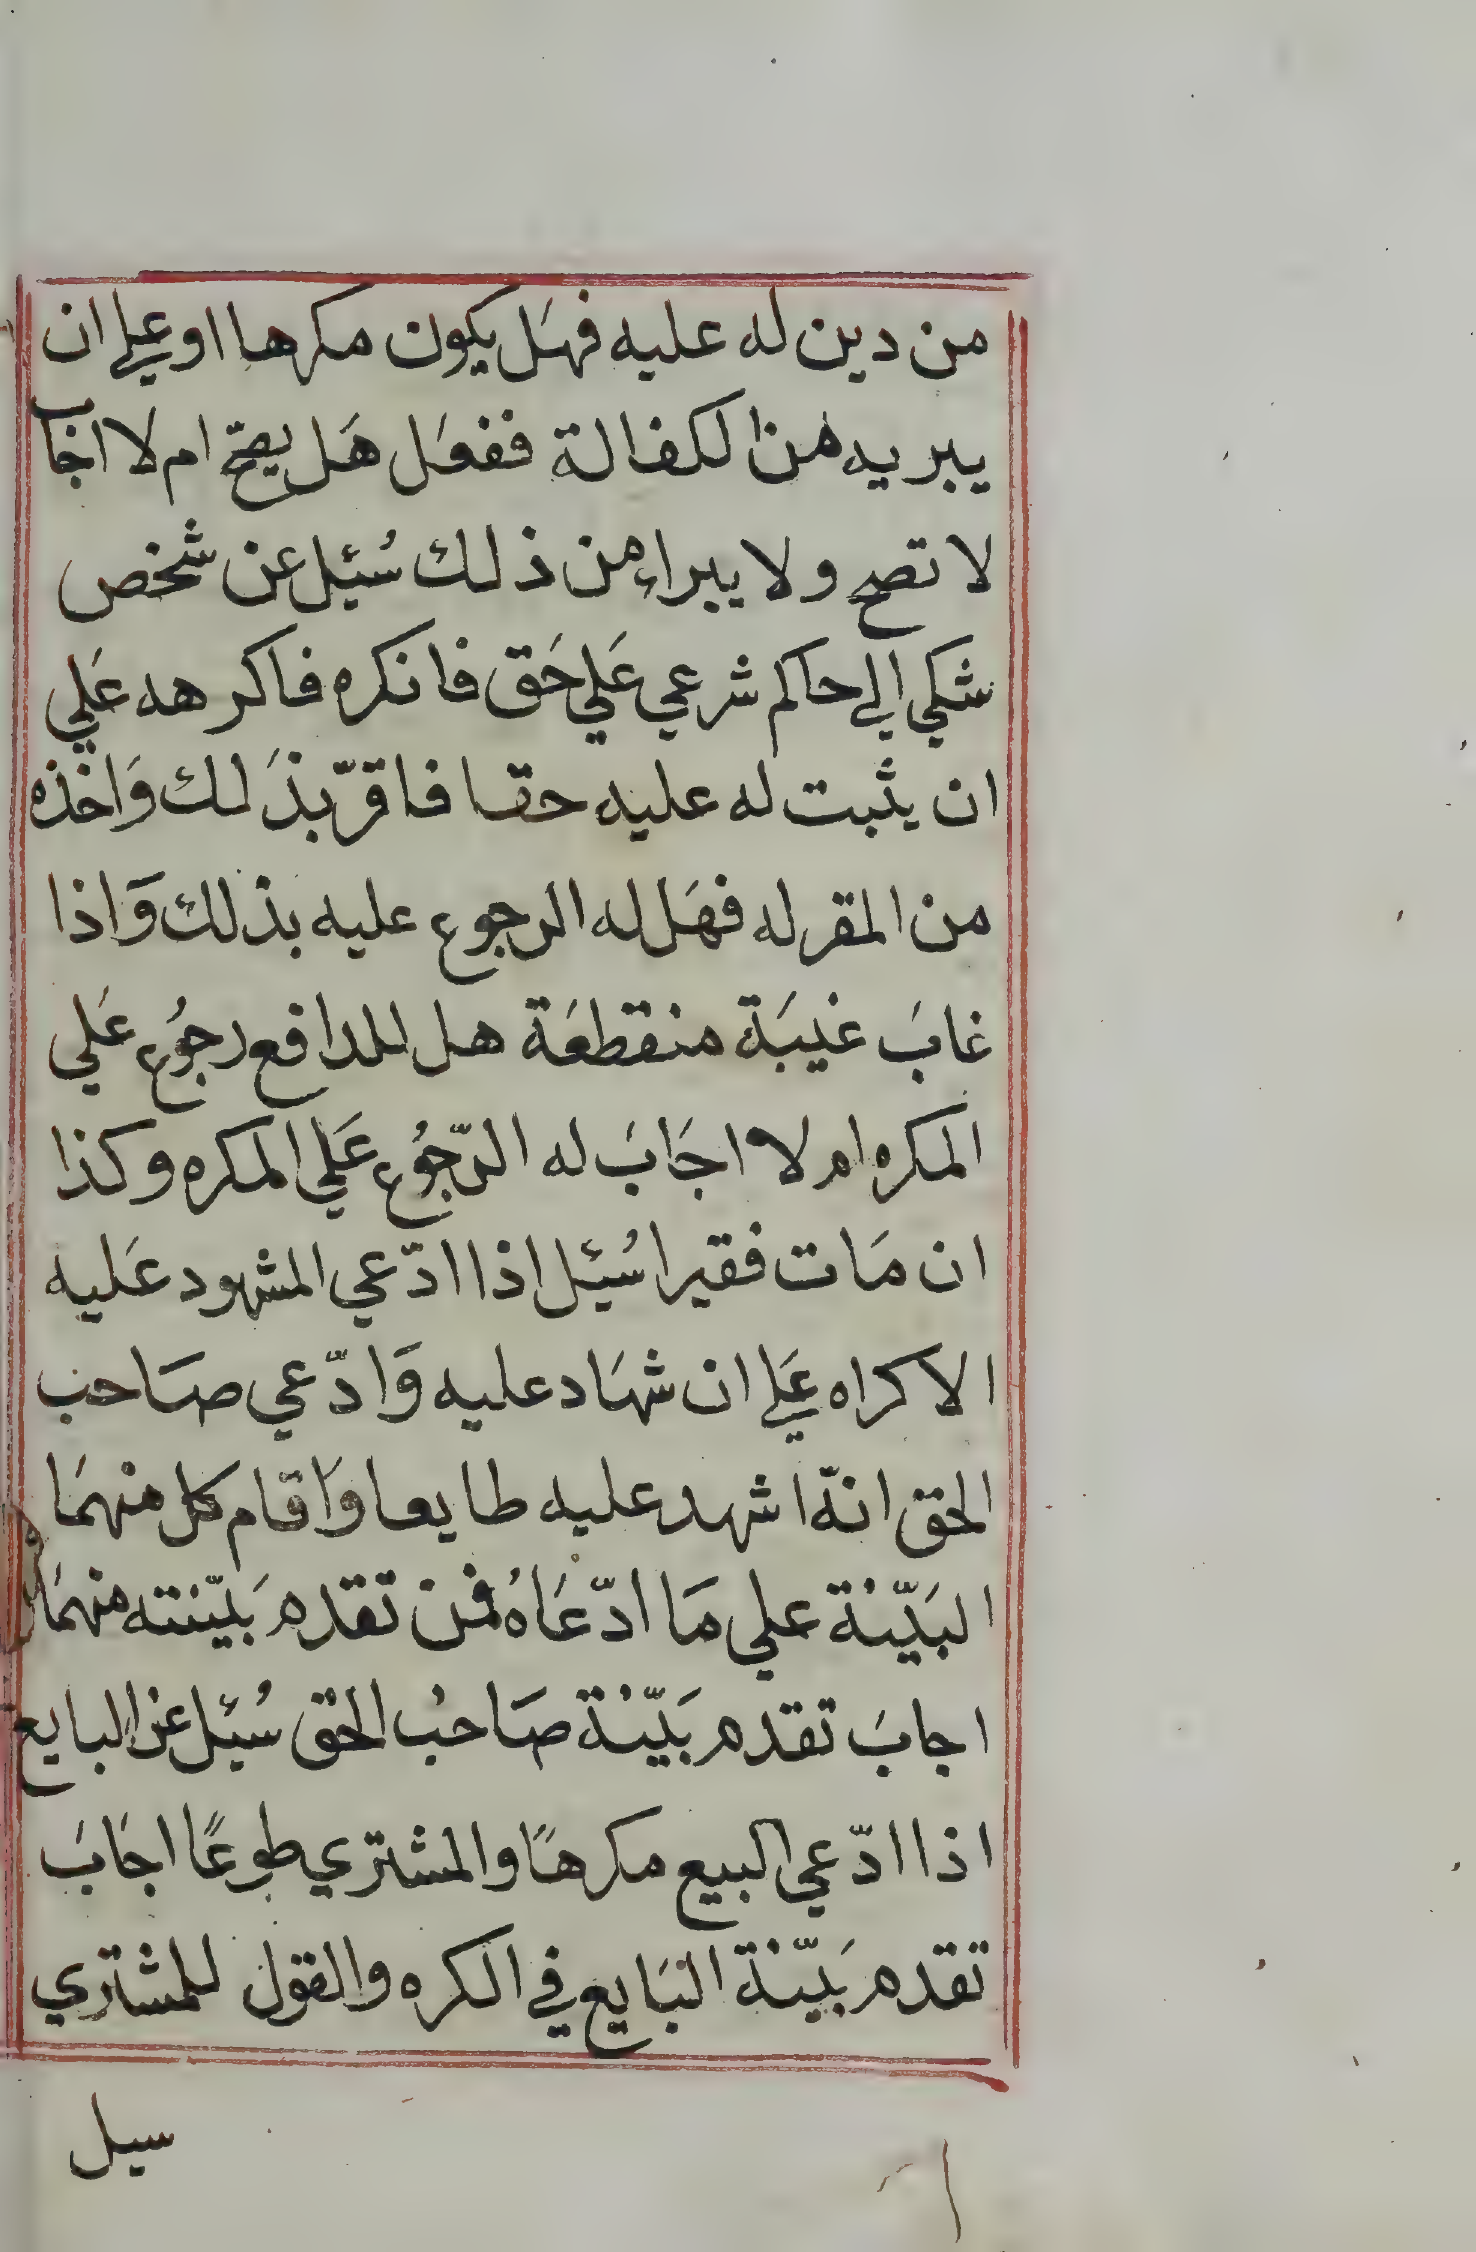 من دين له عليه فهل يكون مكرها او علي ان
يبريه من الكفالة ففعل هل يصحّ ام لا اجاب
لا تصح ولا يبراء من ذلك سُئِل عن شخص
شكي الي حاكم شرعي علي حق فانكره فاكرهه علي
ان يثبت له عليه حقا فاقرّ بذلك واخذه
من المقر له فهل له الرجوع عليه بذلك واذا
غاب غيبة منقطعة هل للدافع رجوع علي
المكره ام لا اجاب له الرّجوع علي المكره وكذا
ان مات فقيرا سُئِل اذا ادّعي المشهود عليه
الاكراه علي ان شهاد عليه وادّعي صاحب
الحق انهّ اشهد عليه طايعا واقام كل منهما
البيّنة علي ما ادّعاهُ فمن تقدم بيّنته منهما
اجاب تقدم بيّنة صاحب الحق سُئِل عن البايع
اذا ادّعي البيع مكرهًا والمشتري طوعًا اجاب
تقدم بيّنة البايع في الكره والقول للمشتري
سيل